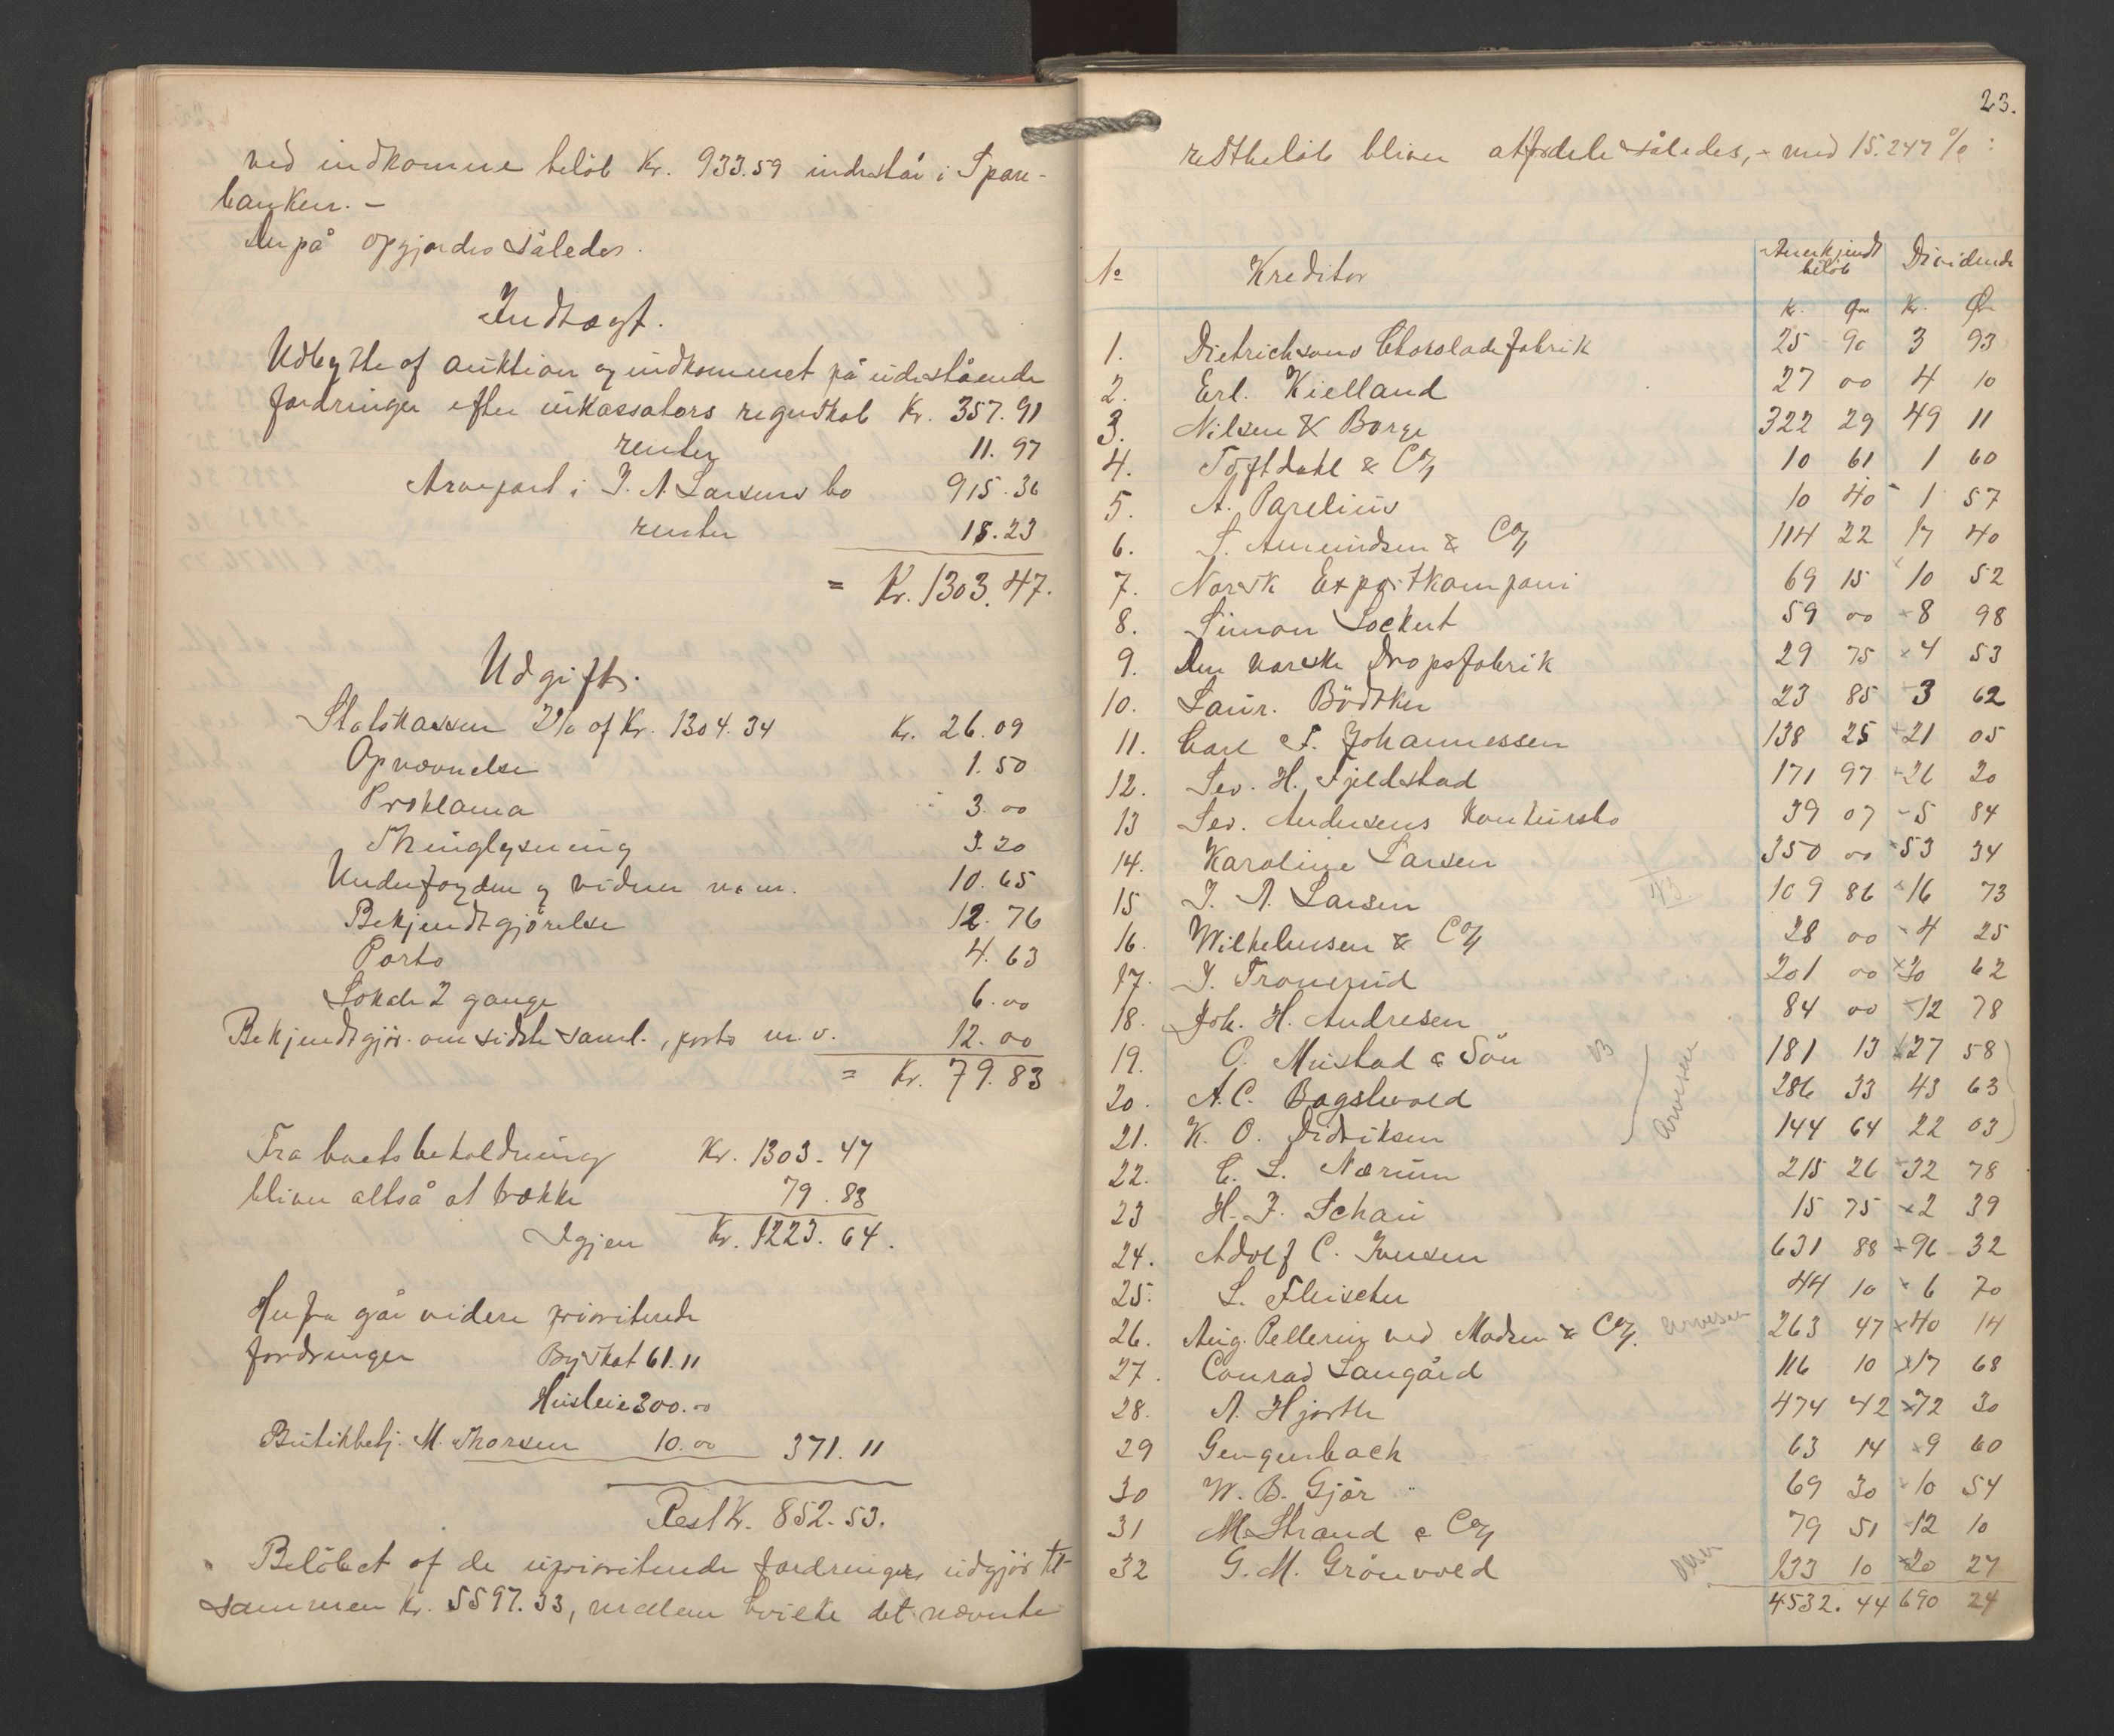 ved indkomne beløb Kr. 933.59 indestår i Spare-
banken. -
Derpå opgjordes således.
Indtægt.
Udbytte af auktion og indkommet på udestående
fordringer efter inkassators regnskab Kr. 357.91
renter 11.97
Arvepart i J. A. Larsens bo 915.36
renter 18.23
= Kr. 1303.47.
Udgift.
Statskassen 2% af Kr. 1304.34 Kr. 26.09
Opnævnelse 1.50
Proklama 3.00
Thinglysning 3.20
Underfogden og vidner m.m. 10.65
Bekjendtgjørelse 12.76
Porto 4.63
Lokale 2 gange 6.00
Bekjendtgjør. om sidste saml., porto m.v. 12.00
= Kr. 79.83
Fra boets beholdning Kr. 1303.47
bliver altså at trække 79.83
Igjen Kr. 1223.64.
Herfra går videre prioriterede
fordringer Byskat 61.11
Husleie 300.00
Butikbetj. M. Thorsen 10.00 371.11
Rest Kr. 852.53.
Beløbet af de upriviterede fordringer udgjør til-
sammen Kr. 5597.33, mellem hvilke det nævnte
23.
restbeløb bliver at fordele således, - med 15.247% :
No Kreditor Anerkjendt beløb Dividende
Kr. Øre Kr. Øre
1. Dietrichsons Chokoladefabrik 25 90 3 93
2. Erl. Kielland 27 00 4 10
3. Nilsen & Borge 322 29 49 11
4. Toftdahl & Co/ 10 61 1 60
5. A. Parelius 10 40 1 57
6. S. Amundsen & Co/ 114 22 17 40
7. Norsk Exportkompani 69 15 10 52
8. Simon Lockert 59 00 8 98
9. Den norske Dropsfabrik 29 75 4 53
10. Laur. Bödtker 23 85 3 62
11. Carl F. Johannessen 138 25 21 05
12. Sev. H. Fjeldstad 171 97 26 20
13 Sev. Andersens Konkursbo 39 07 5 84
14. Karoline Larsen 350 00 53 34
15 J. A. Larsen 109 86 16 73
16. Wilhelmsen & Co/ 28 00 4 25
17. J. Tronerud 201 00 30 62
18. Joh. H. Andresen 84 00 12 78
19. O. Mustad & Sön 181 13 27 58
20. A. C. Bagshvold 286 33 43 63
21. K. O. Didriksen 144 64 22 03
Arvesen
22. C. L. Nærum 215 26 32 78
23 H. J. Schau 15 75 2 39
24. Adolf C. Iversen 631 88 96 32
25. L. Fleischer 44 10 6 70
26. Aug. Pellerin ved Madsen & Co/. Arvesen 263 47 40 14
27. Conrad Langård 116 10 17 68
28. A. Hjorth 474 42 72 30
29 Gengenbach 63 14 9 60
30 W. B. Gjør 69 30 10 54
31 M. Strand & Co/ 79 51 12 10
32 G. M. Grönvold 133 10 20 27
4532.44 690 24